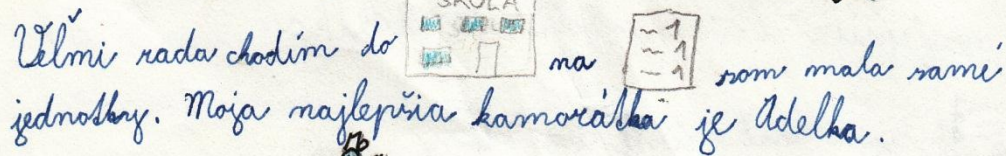 ŠKOLA
Veľmi rada chodím do na 1 1 1 som mala samé
jednotky. Moja najlepšia kamorátka je Adelka.